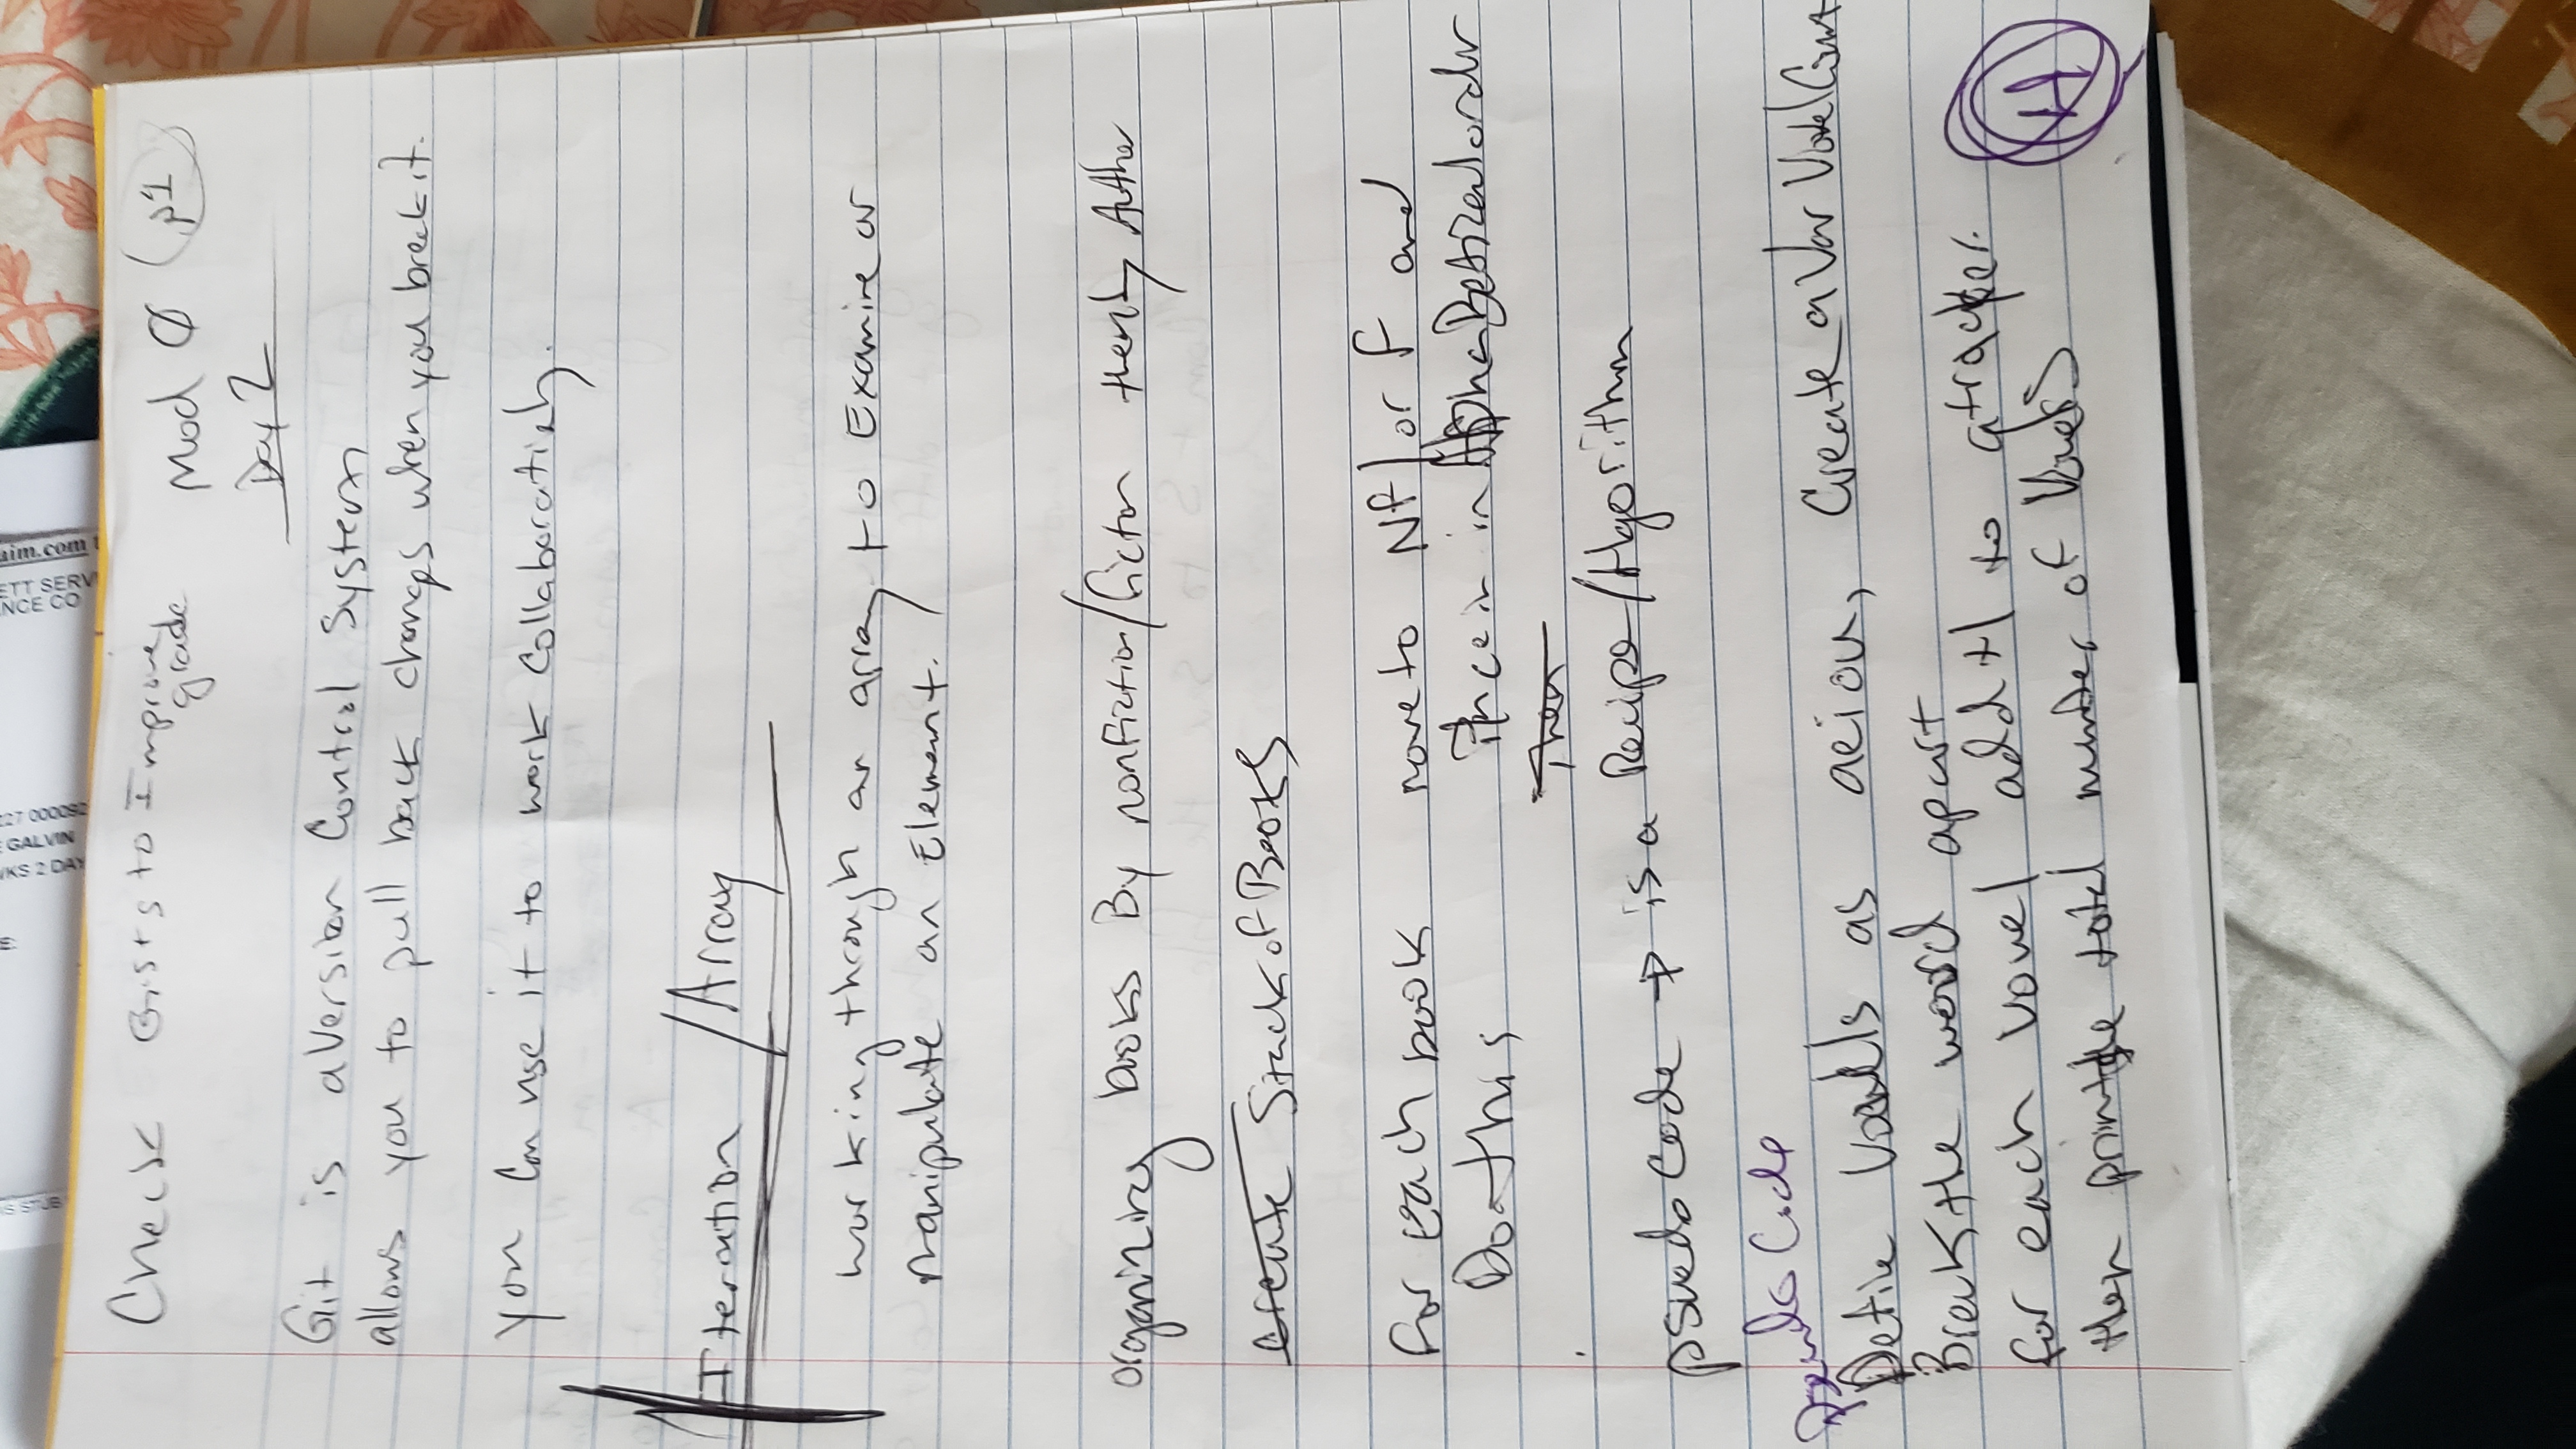 Check Gists to Improve
grade
Mod Ø (p1)
Day 2
Git is a Version Control System
allows you to pull back changes when you break it.
you can use it to work collaboratively.
Iteration / Array
working through an array to Examine or
manipulate an Element.
organizing books By nonfiction/fiction then by Auther
create Stack of Books
for each book move to NF/or F and
Do this in
then
psuedo code → is a Recipe/Algorithm
Pseudo Code
Define Vowells as aeiou, Create a Var VowelCount
Break the word apart
for each vowel add +1 to a tracker.
then print the total number of Vowels
+1
STUB
KS 2 DAY
GALVIN
27 000092
NCE CO
ETT SERV
aim.com